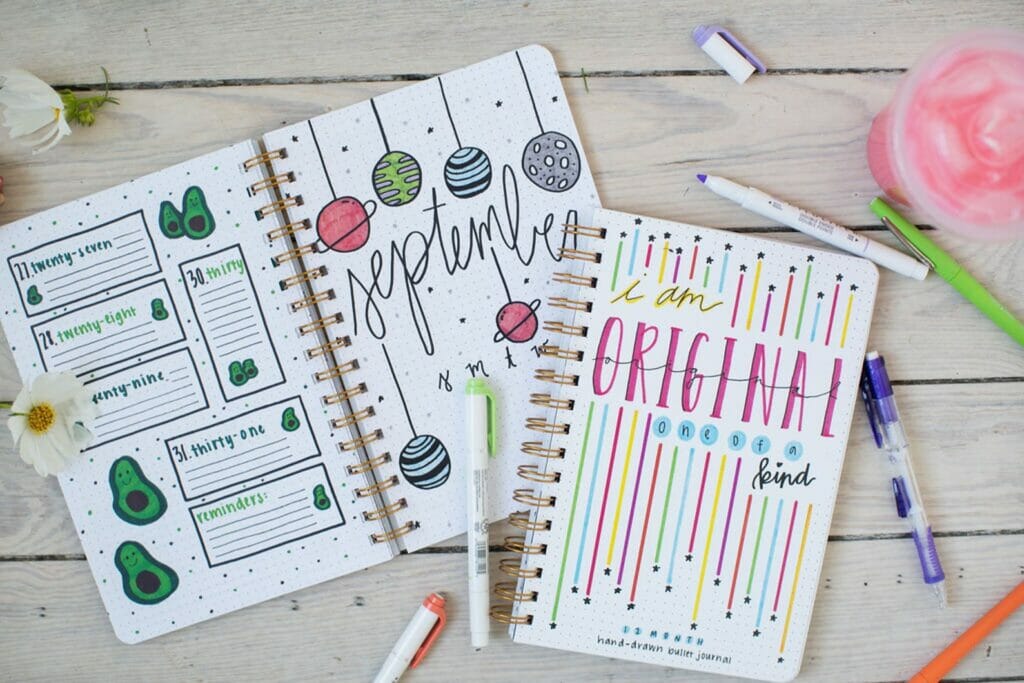 27. twenty-seven
28. twenty-eight
twenty-nine
30. thirty
31. thirty-one
reminders:
september
s m t w
i am
ORIGINAL
original
one of a
kind
12 MONTH
hand-drawn bullet journal